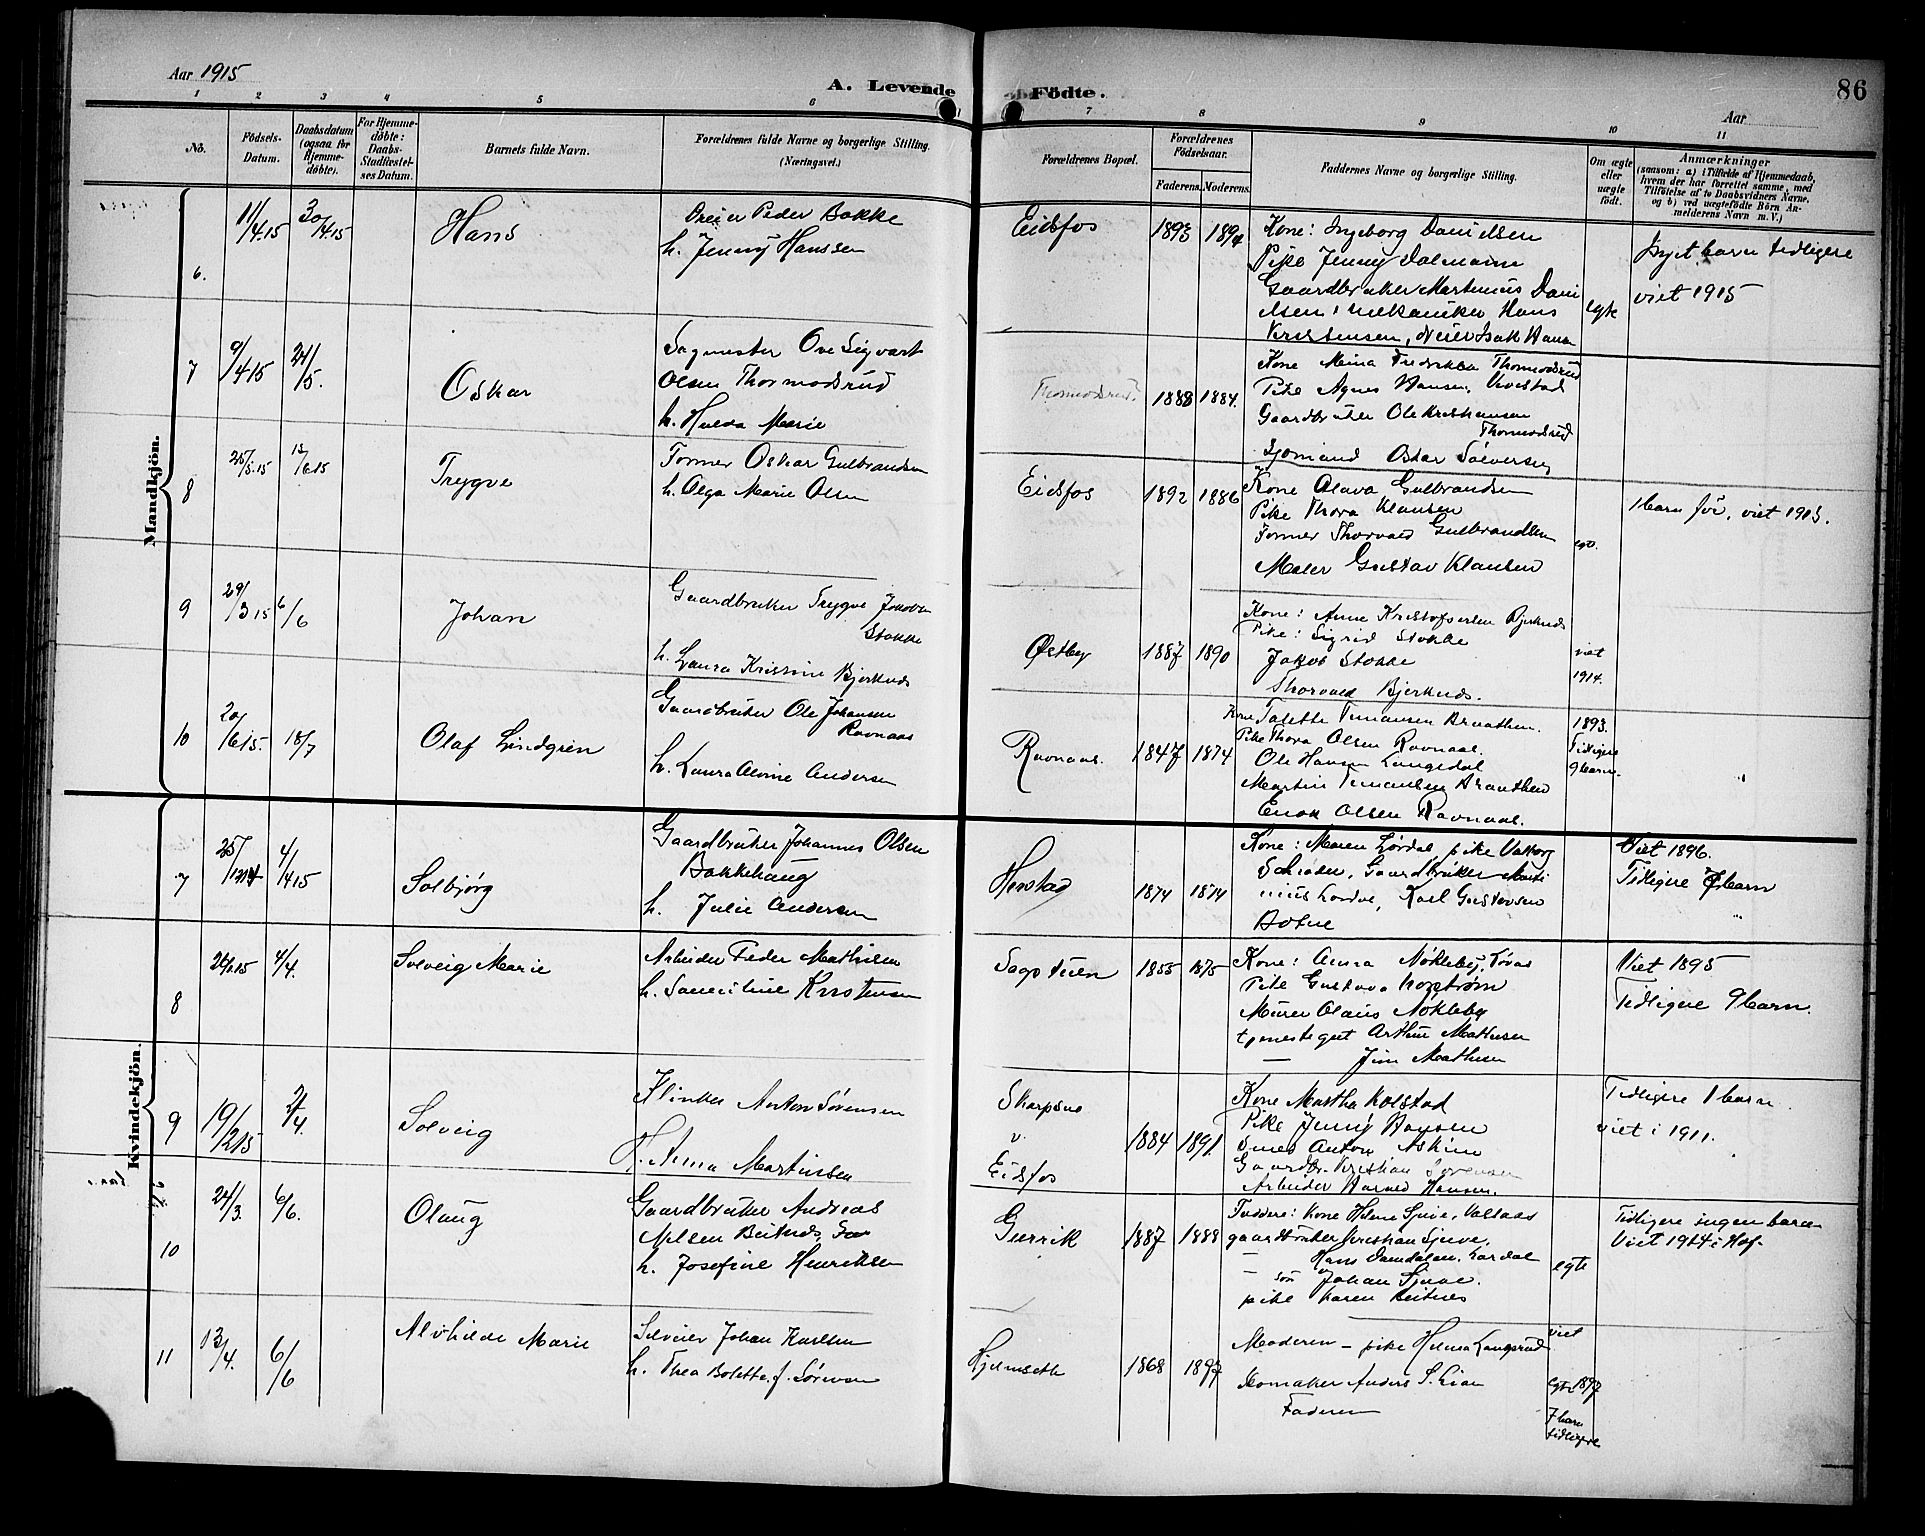 Aar 1915
A. Levende Födte.
86
Aar
1 2 3 4 5 6 7 8 9 10 11
No.
Födsels-Datum.
Daabsdatum (ogsaa for Hjemme-døbte).
For Hjemme-døbte: Daabs-Stadfæstel-ses Datum.
Barnets fulde Navn.
Forældrenes fulde Navne og borgerlige Stilling. (Næringsvei.)
Forældrenes Bopæl.
Forældrenes Födselsaar.
Faderens. Moderens.
Faddernes Navne og borgerlige Stilling.
Om ægte eller uægte født.
Anmærkninger
(saasom: a) i Tilfælde af Hjemmedaab, hvem der har forrettet samme, med Tilföielse af to Daabsvidners Navne. og b) ved uægtefödte Börn An-melderens Navn m. V.)
Mandkjön.
6. 11/4.15 30/4.15 Hans
Dreier Peder Bakke
h. Jenny Hanssen
Eidsfos 1893 1894
Kone: Ingeborg Danielsen
Pike Jenny Dalmann
Gaardbruker Martinius Dani
elsen, mekaniker Hans
Kristensen,
egte
Intet barn tidligere
viet 1915
7 9/4 15 24/5. Oskar
Sagmester Ove Sigvart
Olsen Thormodsrud
h. Hulda Marie
Thormodsrud. 1888 1884.
Kone Mina Fredrikke Thormodsrud
Pike Agnes Hansen,
Gaardbruker Ole Kristiansen
Thormodsrud
Sjömand Oskar
8 25/5.15 13/6.15 Trygve
Former Oskar Gulbrandsen
h. Olga Marie Olsen
Eidsfos 1892 1886
Kone Olava Gulbrandsen
Pike Thora Klausen
Former Thorvald Gulbrandsen
Maler Gustav Klausen
1 barn för, viet 1913.
9 29/3 15 6/6 Johan
Gaardbruker Trygve Jakobsen
Stokke
h. Laura Kristine Bjerknes
Østby 1887 1890
Kone: Anne Kristofersen Bjerknes
Pike: Sigrid Stokke
Jakob Stokke
Thorvald Bjerknes.
viet
1914.
10 20/6 15. 18/7 Olaf Lindgren
Gaardbruker Ole Johansen
Ravnaas
h. Laura Alvine Andersen
Ravnaas. 1847 1874
Kone Talette Braathen.
Pike Thora Olsen Ravnaas.
Ole Hansen Langedal
Martin Braathen
Enok Olsen Ravnaas.
1893.
Tidligere
9 barn.
Kvindekjön.
7 25/12 14 4/4 15 Solbjørg
Gaardbruker Johannes Olsen
Bakkehaug
h. Julie Andersen
1874 1874
Kone: Maren Lördal, pike Valborg
Gaardbruker Marti
nius Lördal, Karl Gustavsen
Botne
Viet 1896.
Tidligere barn
8 4/4. Solveig Marie
Arbeider Peder Mathisen
h. Kristensen
1855 1875
Kone: Anna Nökleby,
Pike Gustava
Murer Olaus Nökleby
tjenestegut Arthur Mathisen
— Mathisen
Viet 1895
Tidligere 9 barn.
9 19/2 15 2/4. Solveig
Klinker Anton Sörensen
h. Anna Martinsen
v.
Eidsfos
1884 1891
Kone Martha Kolstad
Pike Jenny Hansen
Smed Anton Askim
Gaardbr. Kristian Sörensen
Arbeider Harald Hansen.
Tidligere 1 barn
viet i 1911.
10 24/3. 6/6. Olaug
Gaardbruker Andreas
Nilsen
h. Josefine Henriksen
1887 1888
Faddere: Kone Helene Sjue,
gaardbruker Kristian Sjue,
— Hans Lardal
— sön Johan Sjue.
pike Karen
egte
Tidligere ingen barn
Viet 1914 i Hof.
11 13/4. 6/6 Alvhilde Marie
Selveier Johan Karlsen
h. Thea Bolette f. Sörensen
Hjelmseth 1868 1877
Moderen – pike Helena Langsrud
Skomaker Anders S. Lian
Faderen
viet
egte 1897
7 barn
tidligere